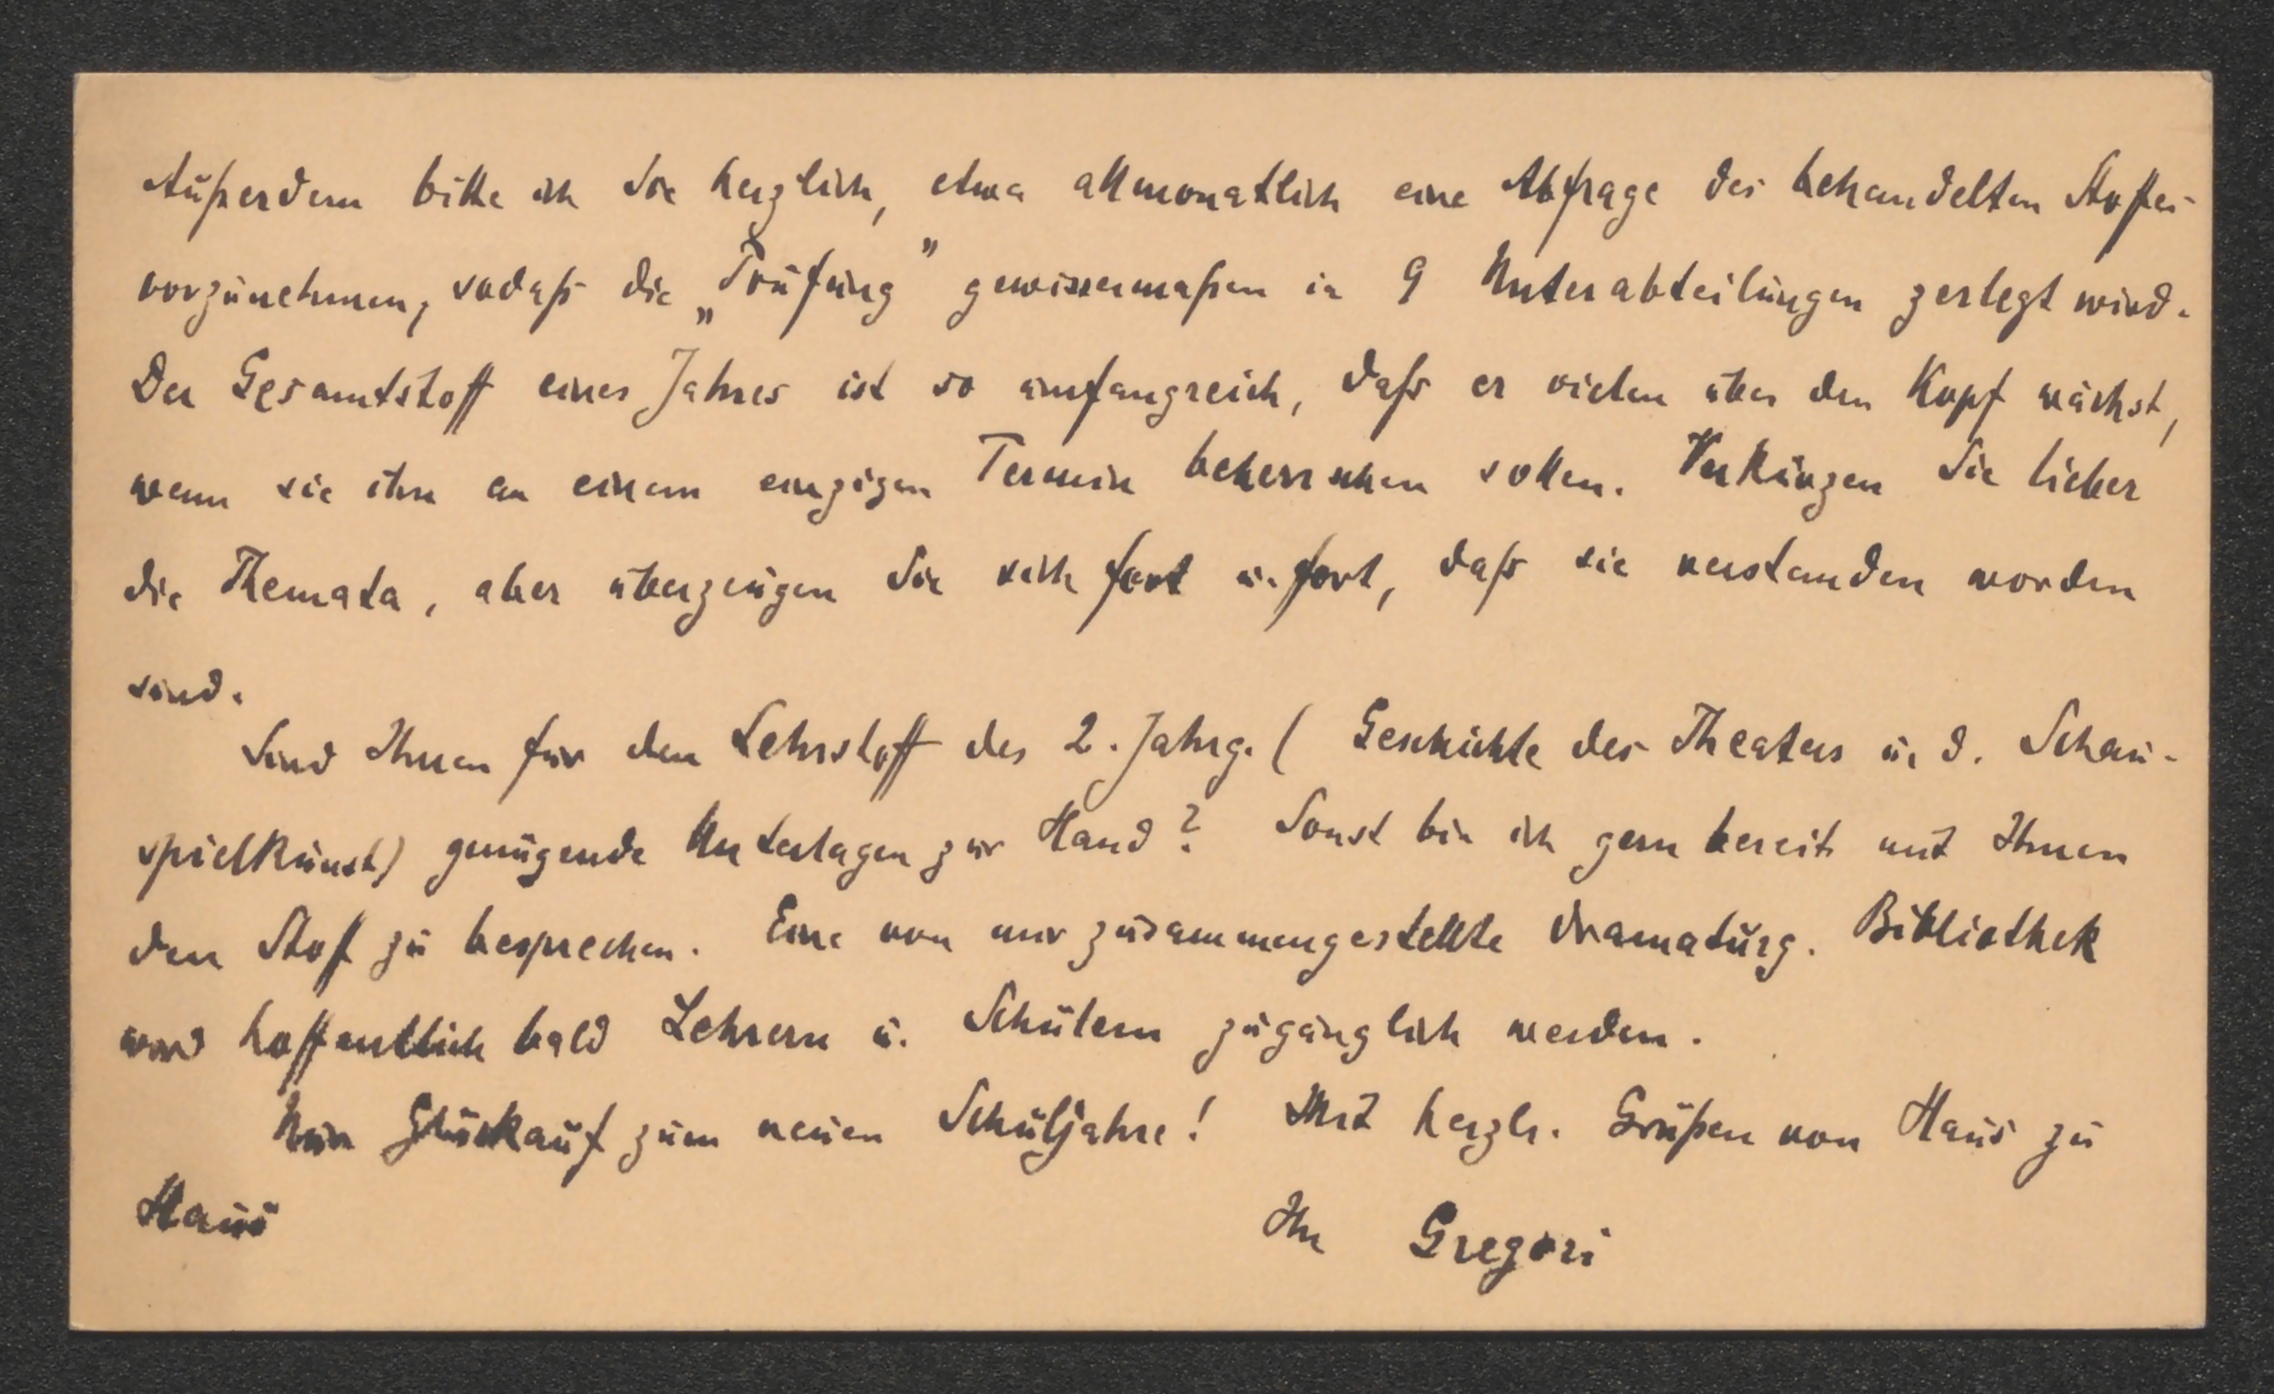 Außerdem bitte ich Sie herzlich, etwa allmonatlich eine Abfrage des behandelten Stoffes
vorzunehmen, sodaß die „Prüfung” gewissermaßen in 9 Unterabteilungen zerlegt wird.
Der Gesamtstoff eines Jahres ist so umfangreich, daß er vielen über den Kopf wächst,
wenn sie ihn an einem einzigen Termin beherrschen sollen. Verkürzen Sie lieber
die Themata, aber überzeugen Sie sich fort u. fort, daß sie verstanden worden
sind.
Sind Ihnen für den Lehrstoff des 2. Jahrg. (Geschichte des Theaters u. d. Schau-
spielkunst) genügende Unterlagen zur Hand? Sonst bin ich gern bereit mit Ihnen
den Stoff zu besprechen. Eine von mir zusammengestellte dramaturg. Bibliothek
wird hoffentlich bald Lehrern u. Schülern zugänglich werden.
Nun Glückauf zum neuen Schuljahre! Mit herzl. Grüßen von Haus zu
Haus
Ihr Gregori